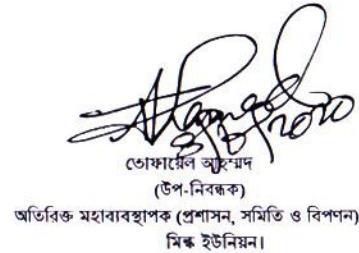 তোফায়েল আহম্মদ
(উপ-নিবন্ধক)
অতিরিক্ত মহাব্যবস্থাপক (প্রশাসন, সমিতি ও বিপণন)
মিল্ক ইউনিয়ন।